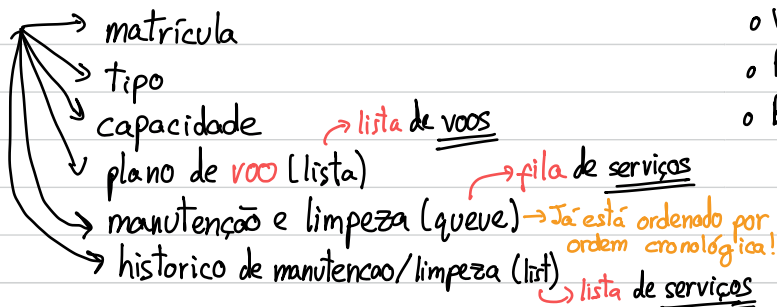 matrícula
tipo
capacidade
→ lista de voos
plano de voo (lista)
→ fila de serviços
manutenção e limpeza (queue) → Já está ordenado por
ordem cronológica!
historico de manutencao/limpeza (list)
→ lista de serviços